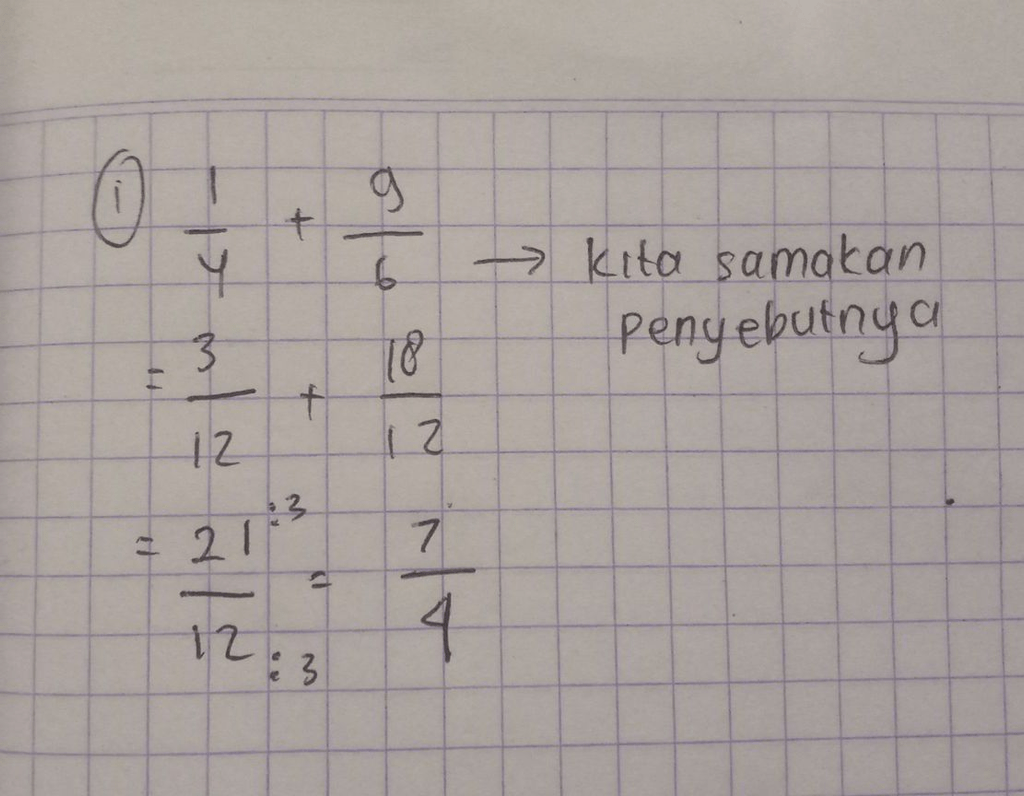 ① 1/4 + 9/6 → kita samakan
penyebutnya
= 3/12 + 18/12
= 21 :3/12 :3 = 7/4